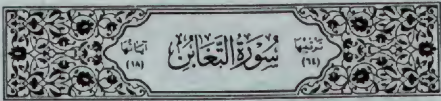 ترتيبها (٦٤) سورة التغابن آياتها (١٨)